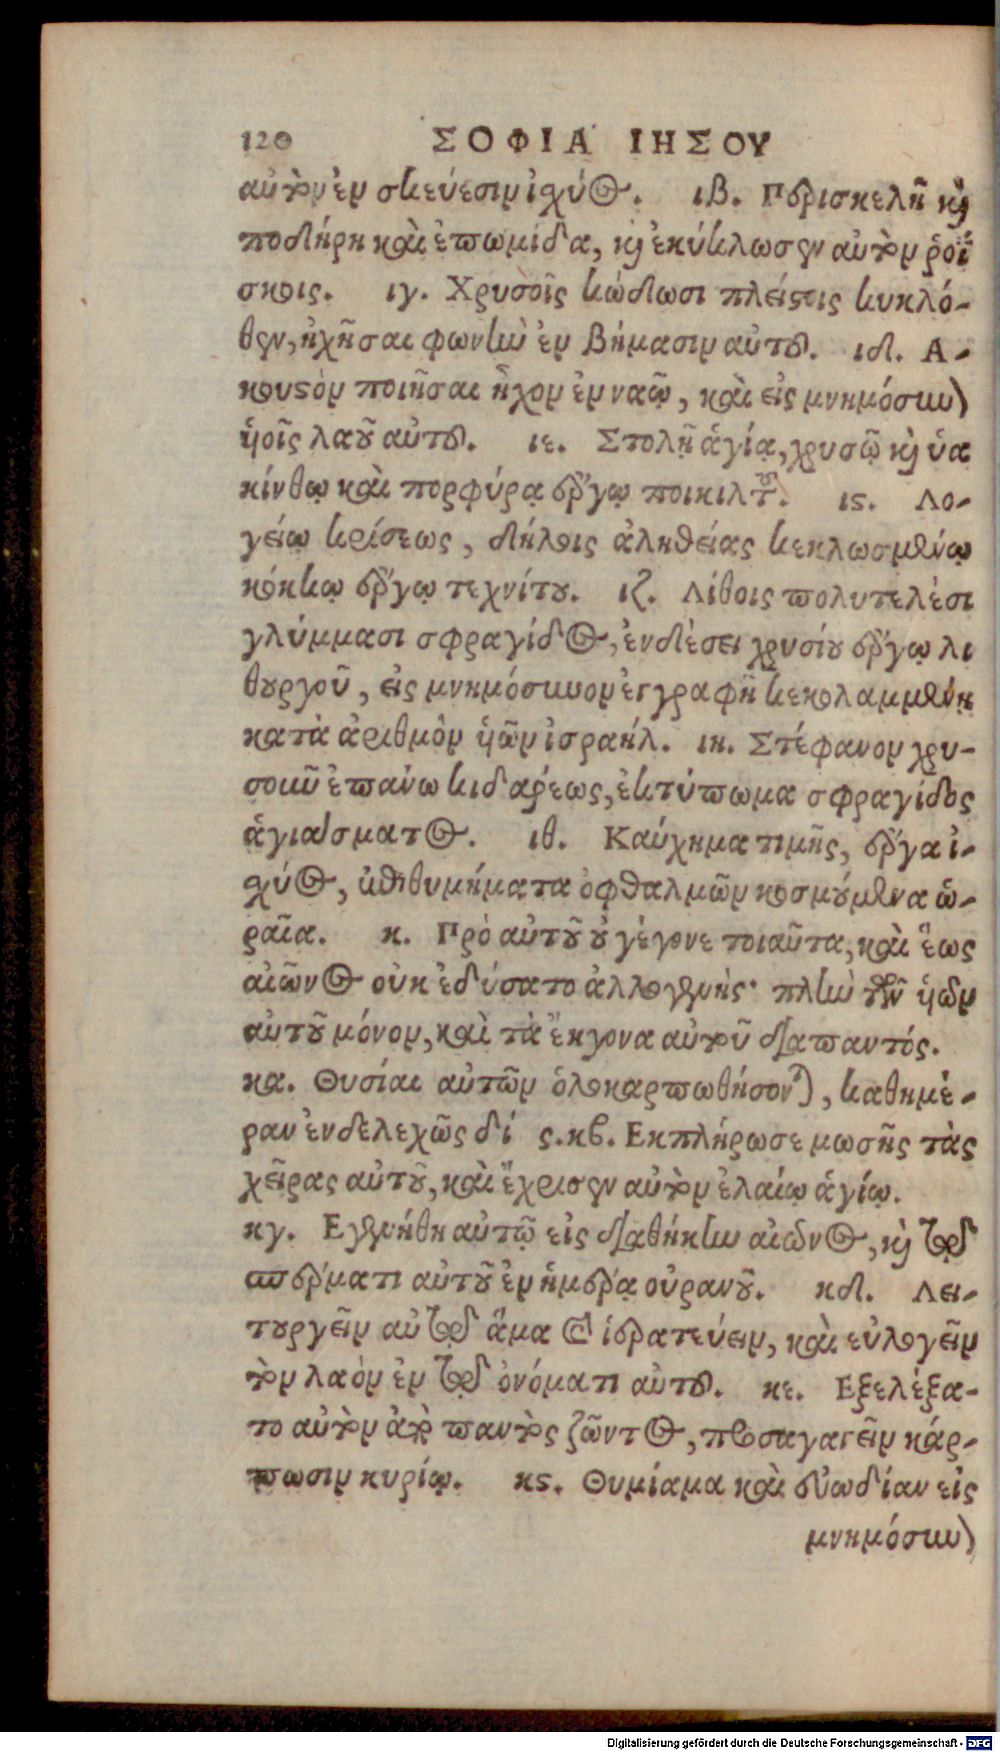 120 ΣΟΦΙΑ ΙΗΣΟΥ
αὐτὸν ἐν σκεύεσιν ἰσχύος. ιβ. Περισκελῆ καὶ
ποδήρη καὶ ἐπωμίδα, καὶ ἐκύκλωσεν αὐτὸν ῥοΐ
σκοις. ιγ. Χρυσοῖς κώδωσι πλείστοις κυκλό-
θεν, ἠχῆσαι φωνὴν ἐν βήμασιν αὐτοῦ. ιδ. Α-
κουστὸν ποιῆσαι ἦχον ἐν ναῷ, καὶ εἰς μνημόσυνον
υἱοῖς λαοῦ αὐτοῦ. ιε. Στολῇ ἁγίᾳ, χρυσῷ καὶ ὑα
κίνθῳ καὶ πορφύρᾳ ἔργῳ ποικιλτοῦ. ις. Λο-
γείῳ κρίσεως, δήλοις ἀληθείας κεκλωσμένῳ
κόκκῳ ἔργῳ τεχνίτου. ιζ. Λίθοις πολυτελέσι
γλύμμασι σφραγίδος, ἐνδέσει χρυσίου ἔργῳ λι
θουργοῦ, εἰς μνημόσυνον ἐγγραφῇ κεκολαμμένῃ
κατὰ ἀριθμὸν υἱῶν ἰσραήλ. ιη. Στέφανον χρυ-
σοῦν ἐπάνω κιδάρεως, ἐκτύπωμα σφραγίδος
ἁγιάσματος. ιθ. Καύχημα τιμῆς, ἔργα ἰ-
σχύος, ἐπιθυμήματα ὀφθαλμῶν κοσμούμενα ὡ-
ραῖα. κ. Πρὸ αὐτοῦ οὐ γέγονε τοιαῦτα, καὶ ἕως
αἰῶνος οὐκ ἐδύσατο ἀλλογενής· πλὴν τῶν υἱῶν
αὐτοῦ μόνον, καὶ τὰ ἔκγονα αὐτοῦ διαπαντός.
κα. Θυσίαι αὐτῶν ὁλοκαρπωθήσονται, καθημέ-
ραν ἐνδελεχῶς δί ς. κβ. Εκπλήρωσε μωσῆς τὰς
χεῖρας αὐτοῦ, καὶ ἔχρισεν αὐτὸν ἐλαίῳ ἁγίῳ.
κγ. Εγενήθη αὐτῷ εἰς διαθήκην αἰῶνος, καὶ τῷ
σπέρματι αὐτοῦ ἐν ἡμέρᾳ οὐρανοῦ. κδ. Λει-
τουργεῖν αὐτῷ ἅμα καὶ ἱερατεύειν, καὶ εὐλογεῖν
τὸν λαὸν ἐν τῷ ὀνόματι αὐτοῦ. κε. Εξελέξα-
το αὐτὸν ἀπὸ παντὸς ζῶντος, προσαγαγεῖν κάρ-
πωσιν κυρίῳ. κς. Θυμίαμα καὶ εὐωδίαν εἰς
μνημόσυνον
Digitalisierung gefördert durch die Deutsche Forschungsgemeinschaft - DFG